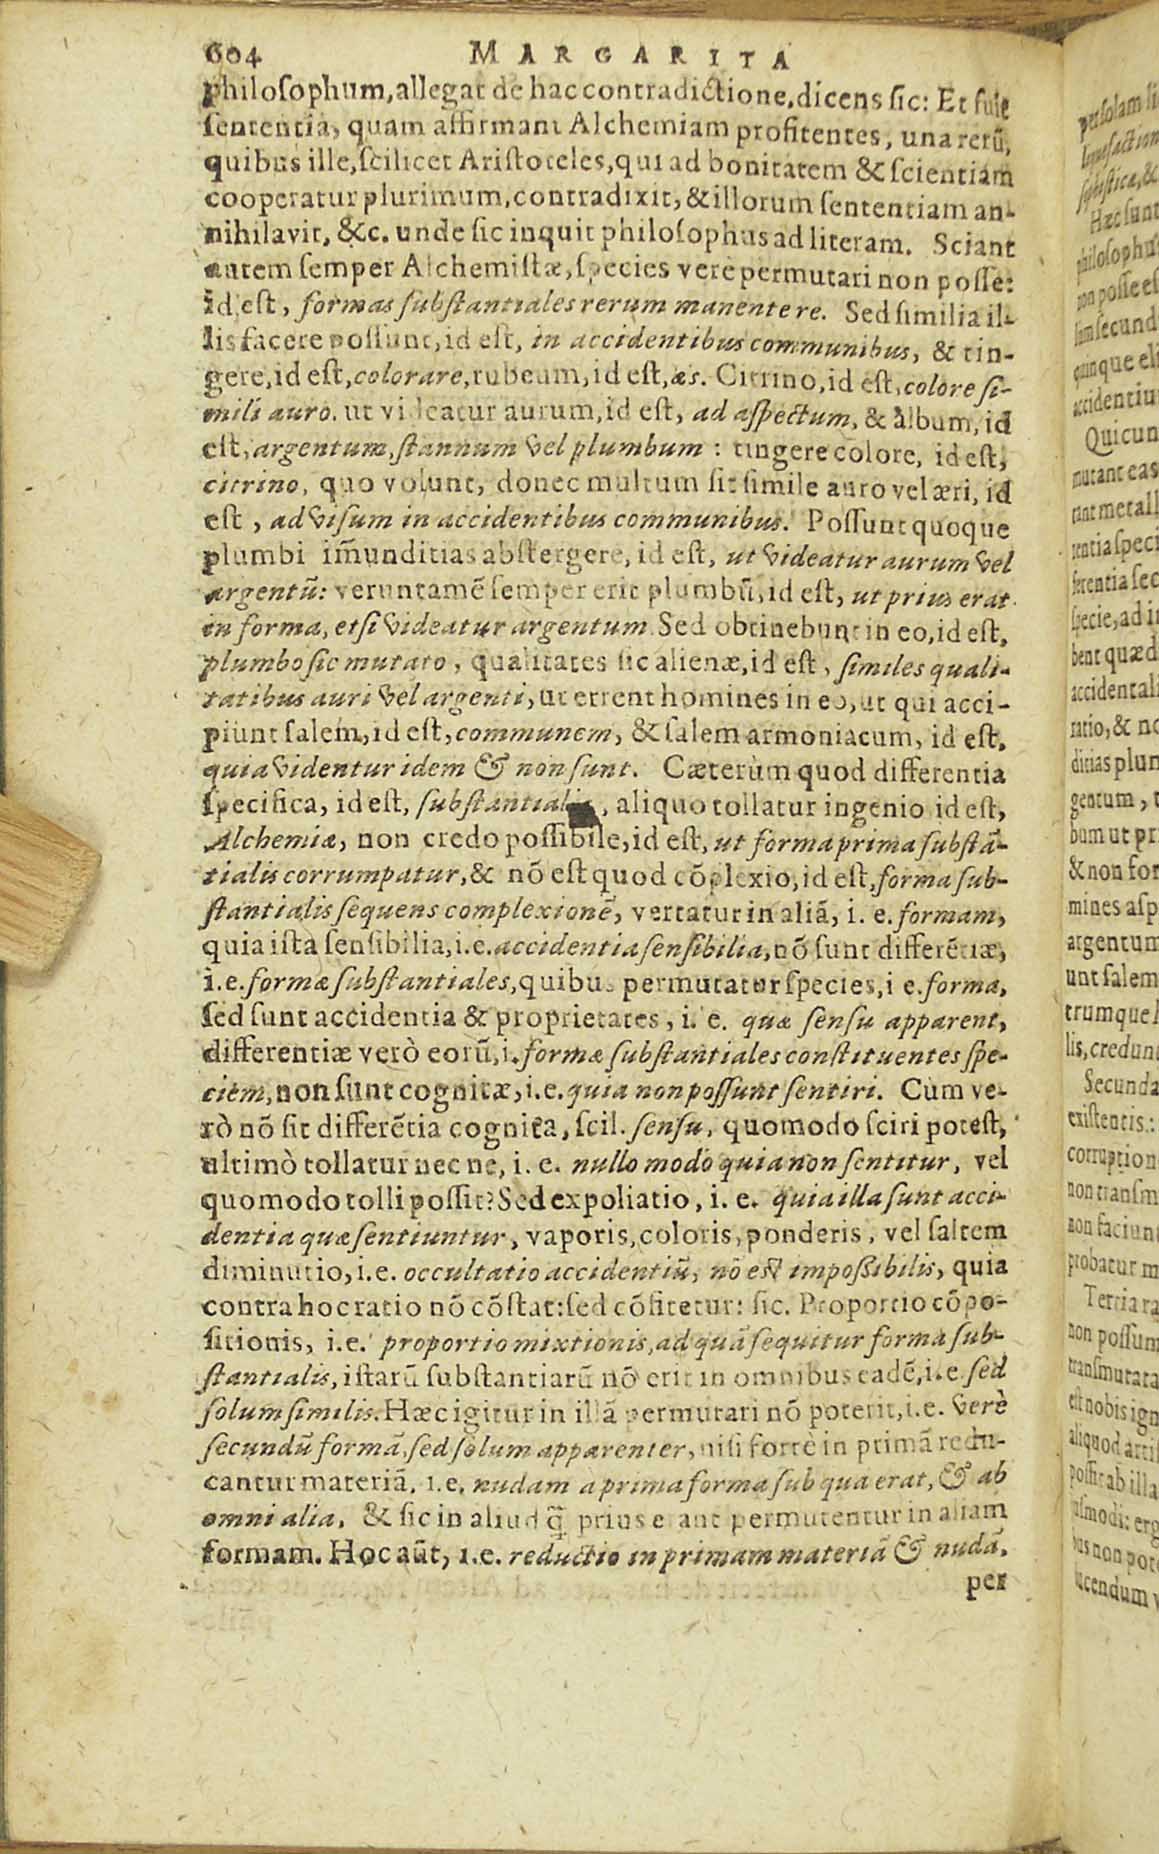 604 MARGARITA
philoſophum, allegat de hac contradictione, dicens ſic: Et fuit
ſententia, quam affirmant Alchemiam profitentes, una rerũ,
quibus ille, ſcilicet Ariſtoteles, qui ad bonitatem & ſcientiam
cooperatur plurimum, contradixit, & illorum ſententiam an-
nihilavit, &c. unde ſic inquit philoſophus ad literam. Sciant
autem ſemper Alchemiſtæ, ſpecies verè permutari non poſſe:
id eſt, formas ſubſtantiales rerum manente re. Sed ſimilia il-
lis facere poſſunt, id eſt, in accidentibus communibus, & tin-
gere, id eſt, colorare, rubeum, id eſt, æs. Citrino, id eſt, colore ſi-
mili auro. ut videatur aurum, id eſt, ad aſpectum, & album, id
eſt, argentum, ſtannum vel plumbum: tingere colore, id eſt,
citrino, quo volunt, donec multum ſit ſimile auro vel æri, id
eſt, ad viſum in accidentibus communibus. Poſſunt quoque
plumbi im̃unditias abſtergere, id eſt, ut videatur aurum vel
argentũ: veruntamẽ ſemper erit plumbũ, id eſt, ut prius erat
in forma, etſi videatur argentum. Sed obtinebunt in eo, id eſt,
plumbo ſic mutato, qualitates ſic alienæ, id eſt, ſimiles quali-
tatibus auri vel argenti, ut errent homines in eo, ut qui acci-
piunt ſalem, id eſt, communem, & ſalem armoniacum, id eſt,
quia videntur idem & non ſunt. Cæterùm quod differentia
ſpecifica, id eſt, ſubſtantialis, aliquo tollatur ingenio id eſt,
Alchemiæ, non credo poſſibile, id eſt, ut forma prima ſubſtã-
tialis corrumpatur, & nõ eſt quod cõplexio, id eſt, forma ſub-
ſtantialis ſequens complexionẽ, vertatur in aliã, i. e. formam,
quia iſta ſenſibilia, i.e. accidentia ſenſibilia, nõ ſunt differẽtiæ,
i.e. formæ ſubſtantiales, quibus permutatur ſpecies, i e. forma,
ſed ſunt accidentia & proprietates, i. e. quæ ſenſu apparent,
differentiæ verò eorũ, i. formæ ſubſtantiales conſtituentes ſpe-
ciem, non ſunt cognitæ, i.e. quia non poſſunt ſentiri. Cùm ve-
rò nõ ſit differẽtia cognita, ſcil. ſenſu, quomodo ſciri poteſt,
ultimò tollatur nec ne, i. e. nullo modo quia non ſentitur, vel
quomodo tolli poſſit? Sed expoliatio, i. e. quia illa ſunt acci-
dentia quæ ſentiuntur, vaporis, coloris, ponderis, vel ſaltem
diminutio, i.e. occultatio accidentiũ, nõ eſt impoſſibilis, quia
contra hoc ratio nõ cõſtat: ſed cõfitetur: ſic. Proportio cõpo-
ſitionis, i.e. proportio mixtionis, ad quã ſequitur forma ſub-
ſtantialis, iſtarũ ſubſtantiarũ nõ erit in omnibus eadẽ, i.e. ſed
ſolum ſimilis. Hæc igitur in illã permutari nõ poterit, i.e. verè
ſecundũ formã, ſed ſolum apparenter, niſi fortè in primã redu-
cantur materiã, i.e. nudam a prima forma ſub qua erat, & ab
omni alia, & ſic in aliud q̃ prius erant permutentur in aliam
formam. Hoc aũt, i.e. reductio in primam materiã & nudã,
per